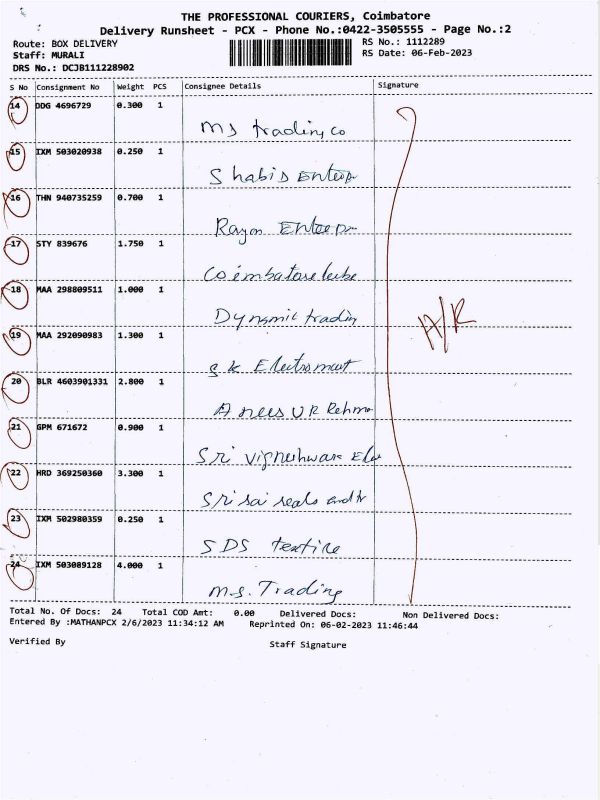 THE PROFESSIONAL COURIERS, Coimbatore
Delivery Runsheet - PCX - Phone No.:0422-3505555 - Page No.:2
Route: BOX DELIVERY RS No.: 1112289
Staff: MURALI RS Date: 06-Feb-2023
DRS No.: DCJB111228902
S No Consignment No Weight PCS Consignee Details Signature
14 DDG 4696729 0.300 1
MS trading co
15 IXM 503020938 0.250 1
Shabis Enterp
16 THN 940735259 0.700 1
Rayon Enterpr
17 STY 839676 1.750 1
Coimbatore lube
18 MAA 298809511 1.000 1
Dynamic trading
19 MAA 292090983 1.300 1
S K Electro mart
A/R
20 BLR 4603901331 2.800 1
Anees UR Rehma
21 GPM 671672 0.900 1
Sri vigneshwara Ele
22 HRD 369250360 3.300 1
Sri sai seals and tr
23 IXM 502980359 0.250 1
SDS textile
24 IXM 503089128 4.000 1
M.S. Trading
Total No. Of Docs: 24 Total COD Amt: 0.00 Delivered Docs: Non Delivered Docs:
Entered By :MATHANPCX 2/6/2023 11:34:12 AM Reprinted On: 06-02-2023 11:46:44
Verified By Staff Signature